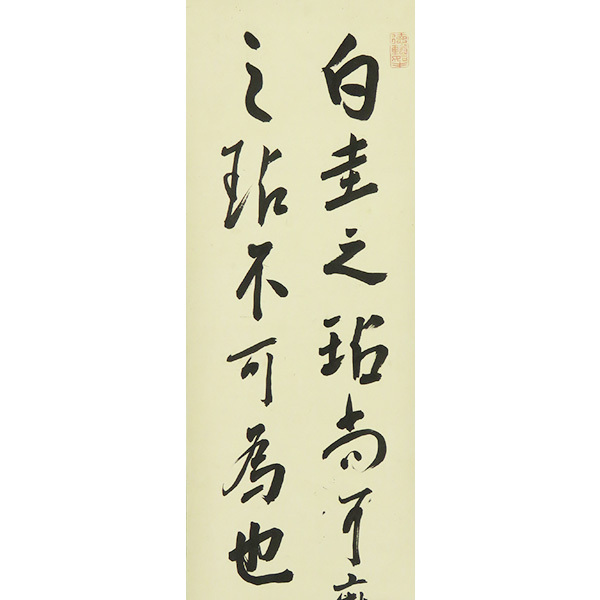 白圭之玷尚可
之玷不可為也